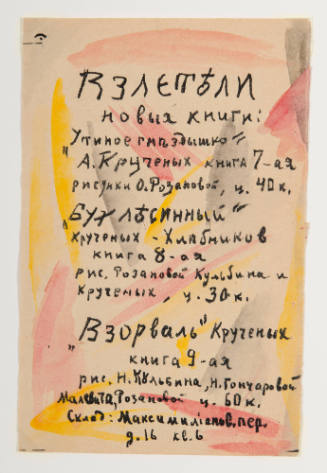 Взлетѣли
новыя книги:
„Утиное гнѣздышко"
А. Крученых книга 7-ая
рисунки О. Розановой, ц. 40 к.
„Бух лѣсинный"
Крученых - Хлѣбников
книга 8-ая
рис. Розановой Кульбина и
Крученых, ц. 30 к.
„Взорваль" Крученых
книга 9-ая
рис. Н. Кульбина, Н. Гончаровой
Малевича, Розановой ц. 60 к.
Склад: Максимилiанов. пер.
д. 16 кв. 6